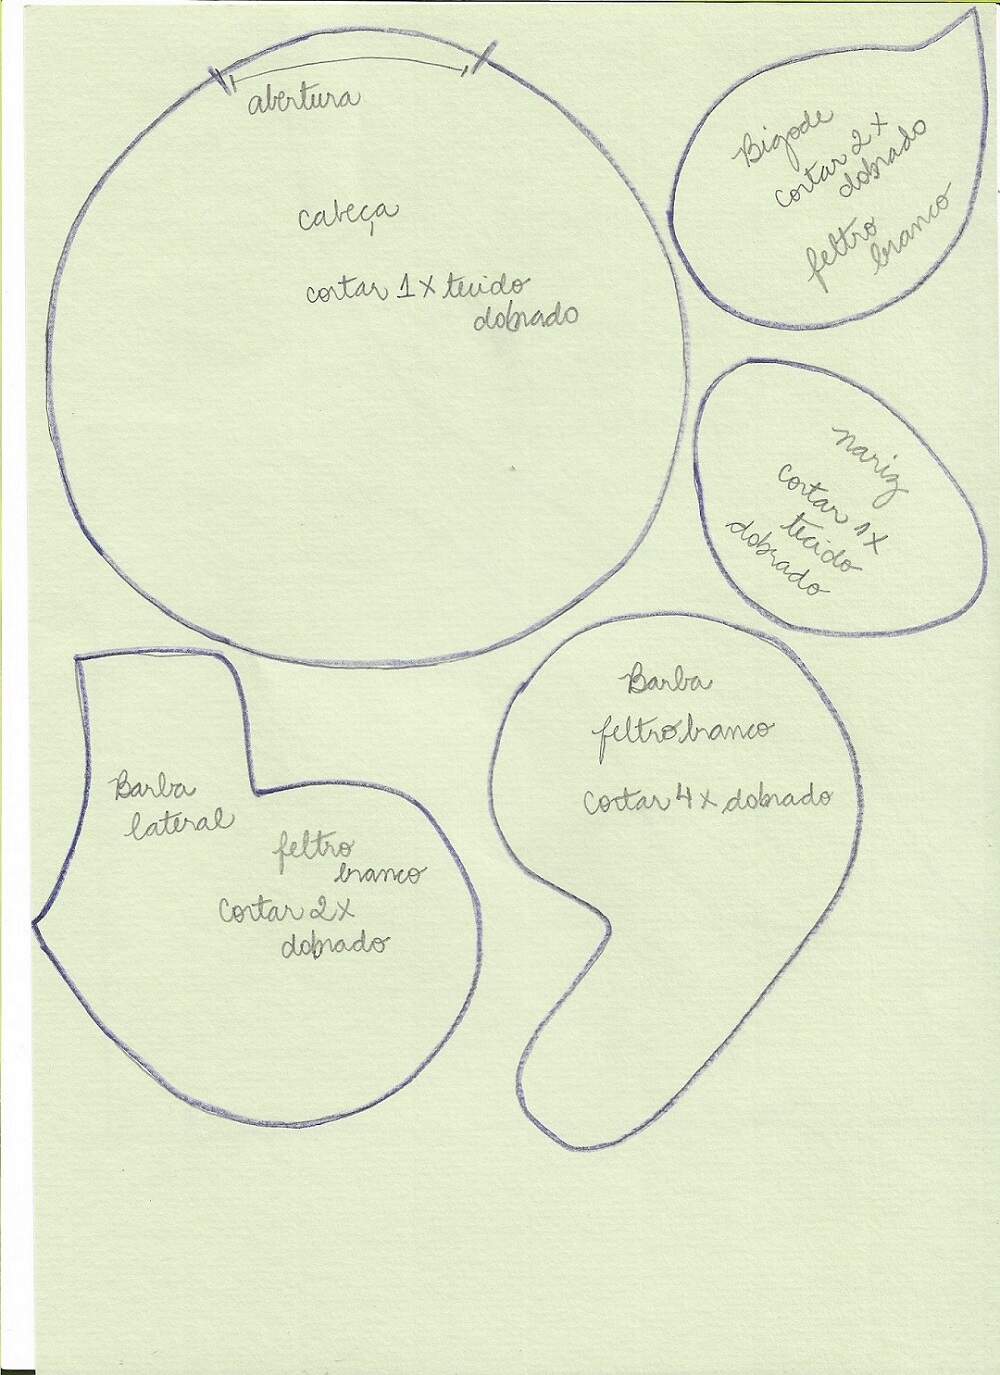 abertura
cabeça
cortar 1X tecido
dobrado
Bigode
cortar 2X
dobrado
feltro
branco
nariz
cortar 1X
tecido
dobrado
Barba
lateral
feltro
branco
cortar 2X
dobrado
Barba
feltro branco
cortar 4X dobrado